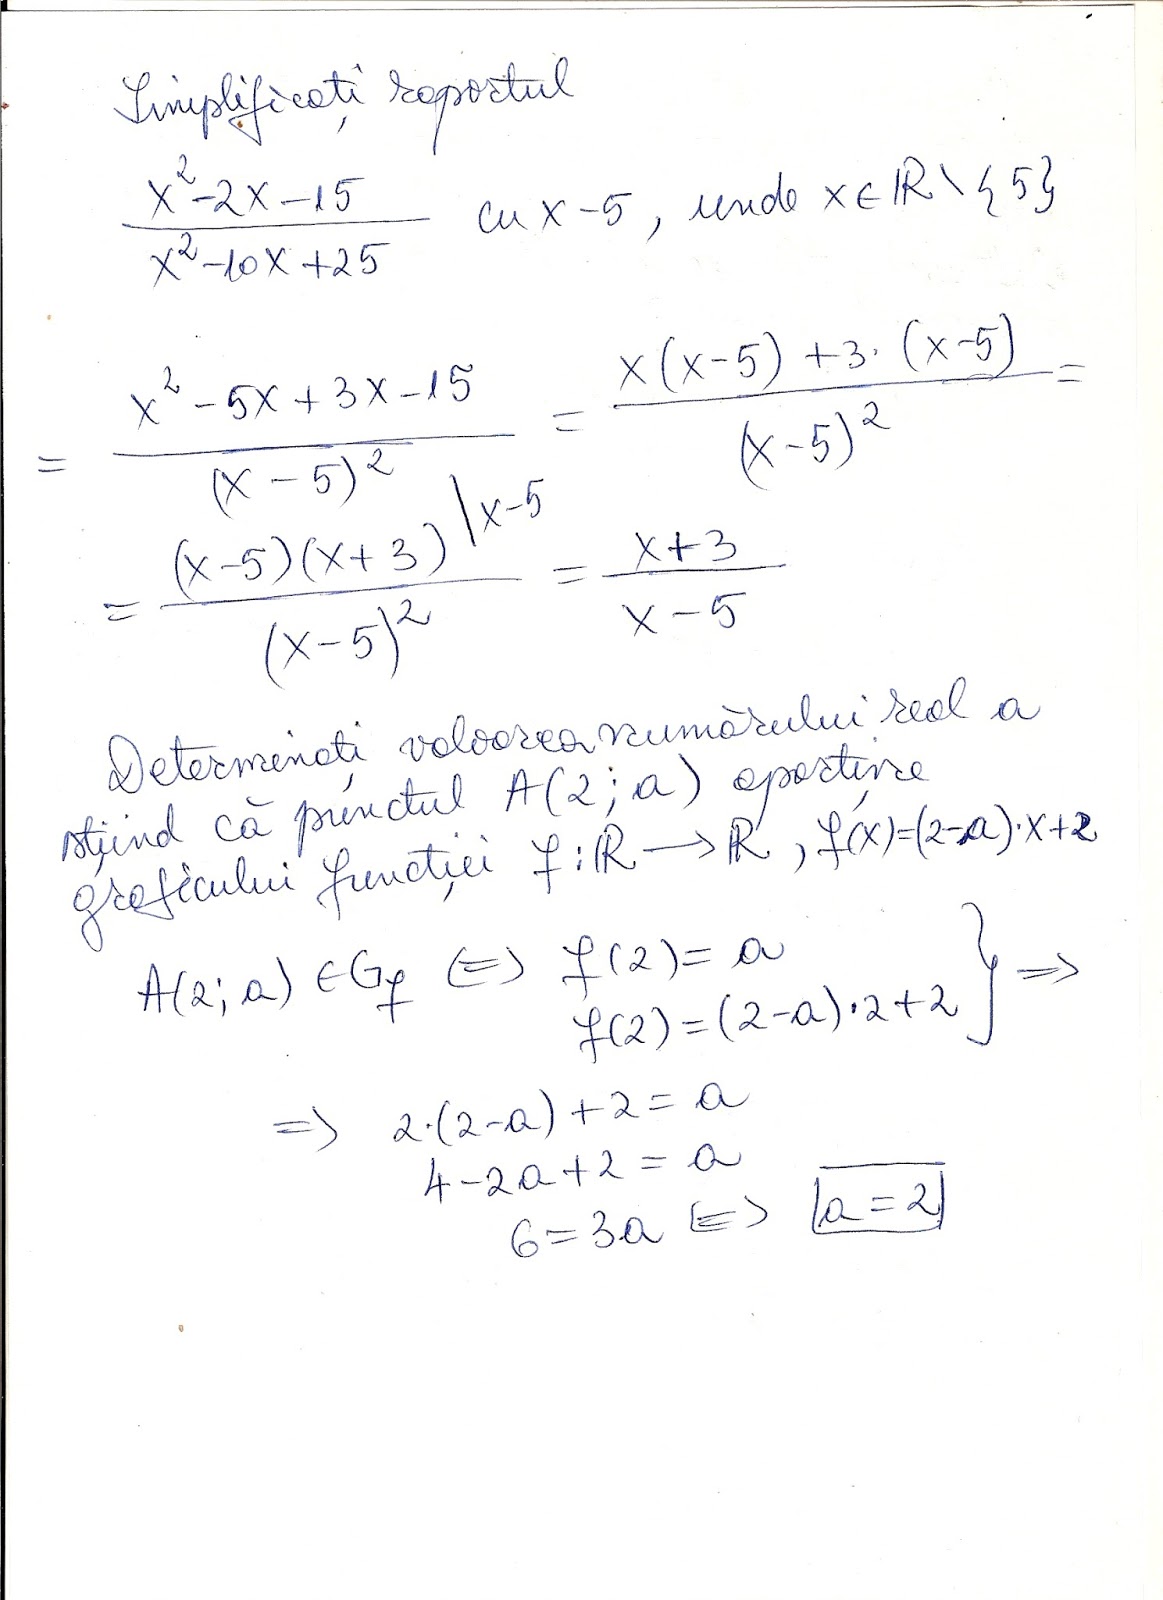 Simplificați raportul
x²-2x-15 / x²-10x+25 cu x-5, unde x∈ℝ\{5}
= x²-5x+3x-15 / (x-5)² = x(x-5)+3·(x-5) / (x-5)² =
= (x-5)(x+3) / (x-5)² |x-5 = x+3 / x-5
Determinați valoarea numărului real a
știind că punctul A(2;a) aparține
graficului funcției f:ℝ→ℝ, f(x)=(2-a)·x+2
A(2;a)∈Gf ⇔ f(2)=a
f(2)=(2-a)·2+2 } ⇒
⇒ 2·(2-a)+2=a
4-2a+2=a
6=3a ⇔ a=2